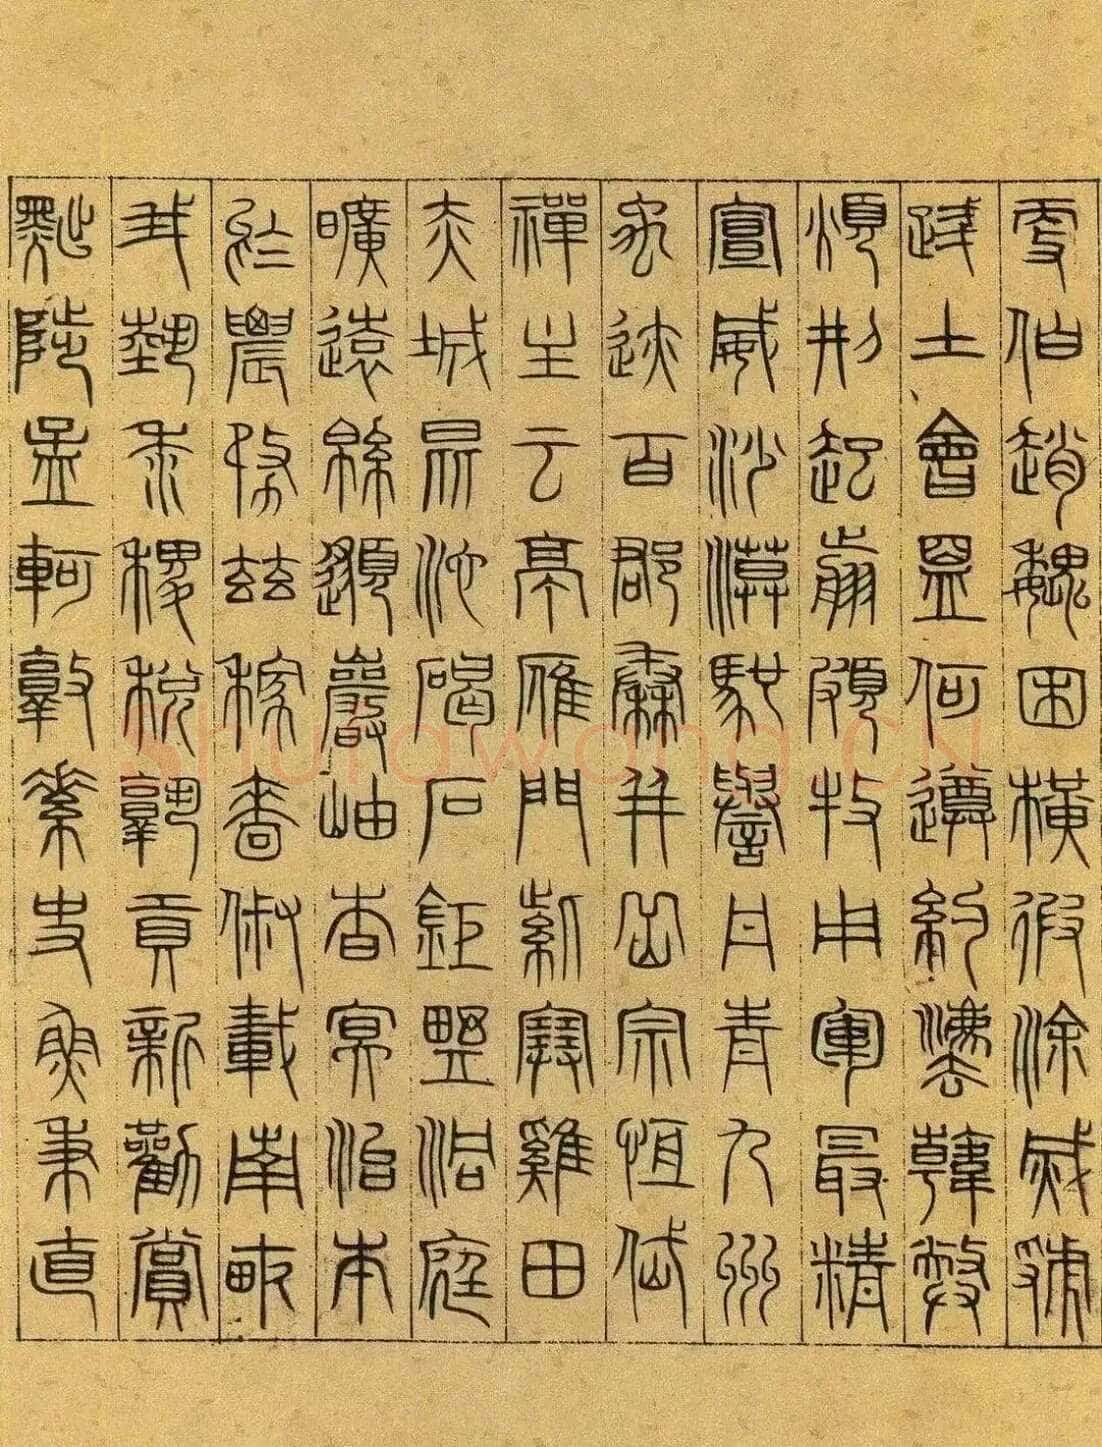 更伯趙魏困橫假涂滅虢
踐土會盟何遵約灋韓弊
煩刑起翦頗牧用軍最精
宣威沙漠馳譽丹青九州
禹迹百郡秦并岳宗恆岱
禪主云亭雁門紫塞雞田
赤城昆池碣石鉅野洞庭
曠遠緜邈巖岫杳冥治本
於農務茲稼穡俶載南畝
我藝黍稷稅熟貢新勸賞
黜陟孟軻敦素史魚秉直
shufawang.CN